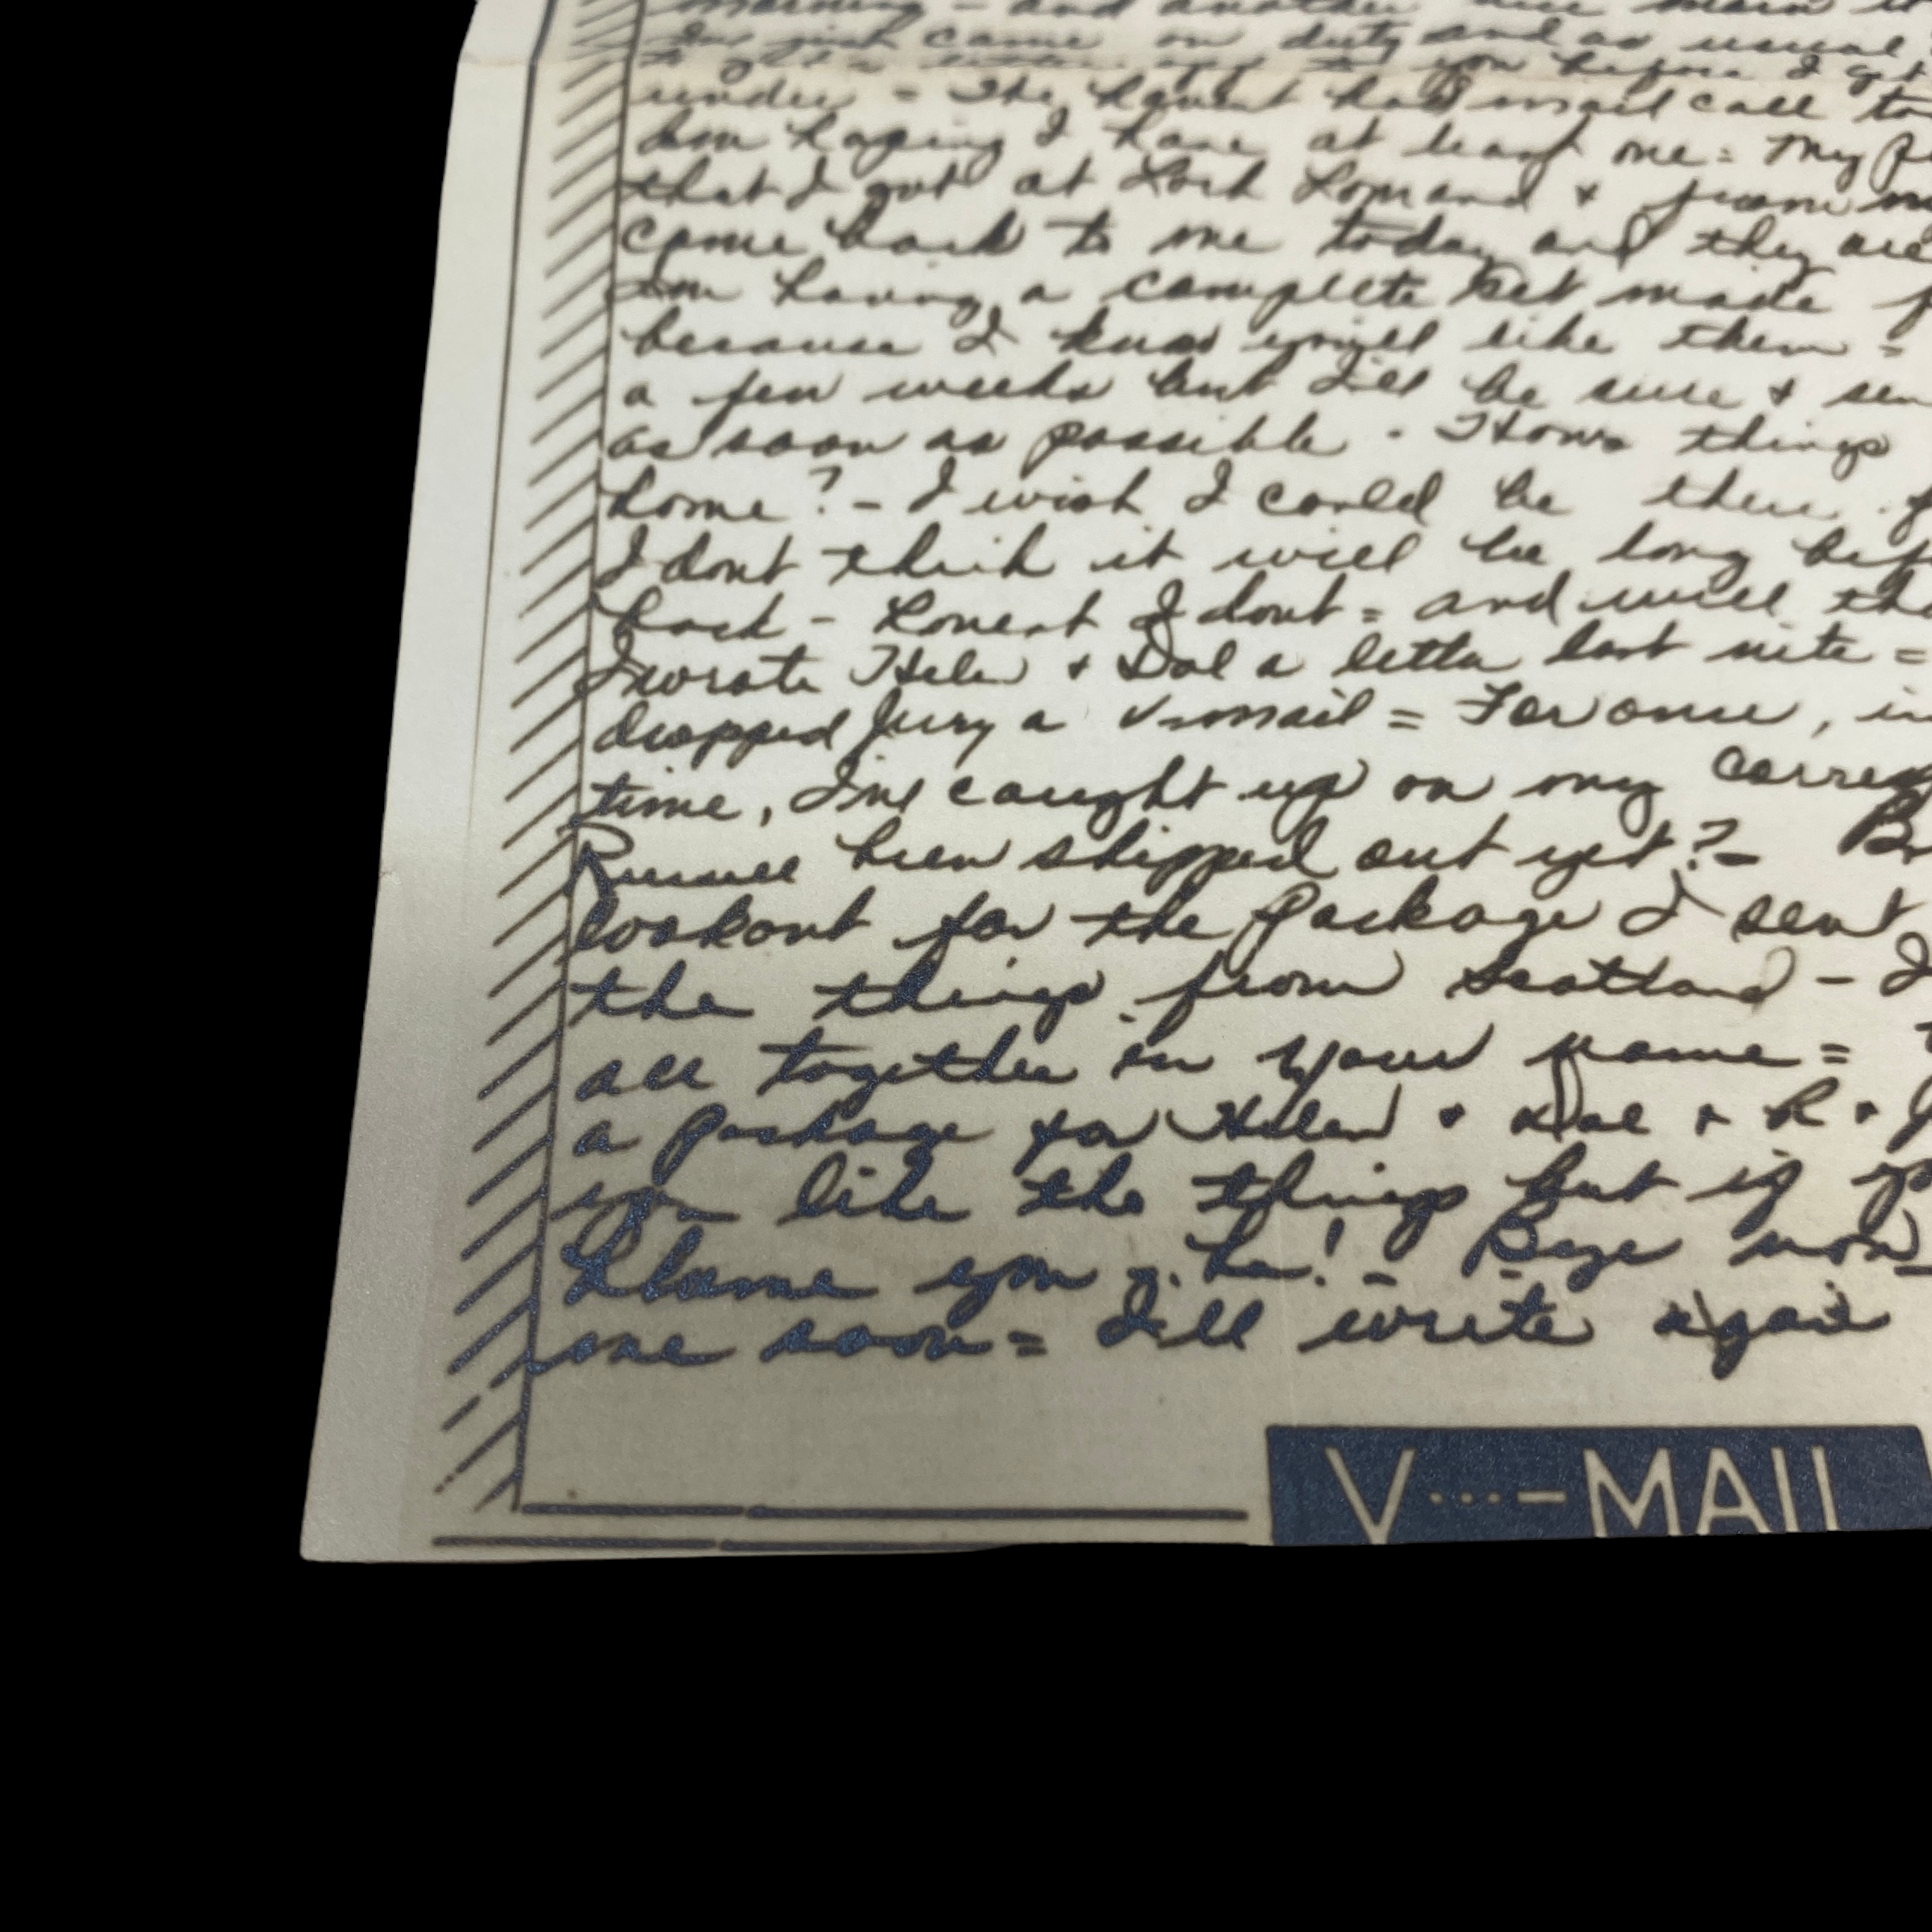 morning - and another
I've just came on duty and as usual
to get a letter off to you before I get
under = The havent had mail call to
Am hoping I have at least one = My
that I got at Loch Lomand & from
came back to me today and they are
Im having a complete set made
because I know you'll like them =
a few weeks but I'll be sure & sen
as soon as possible - Hows things
home? - I wish I could be there
I dont think it will be long bef
back - Honest I dont = and will th
I wrote Helen & Dal a letter last nite =
dropped Jerry a V-mail = For once, in
time, I've caught up on my corres
Russell been shipped out yet? - B
lookout for the package I sent
the things from Scotland - I
all together in your name =
a package for Helen & Dal & R &
you like the things but if yo
blame you, he! - Bye now
one soon = I'll write again
V···-MAIL